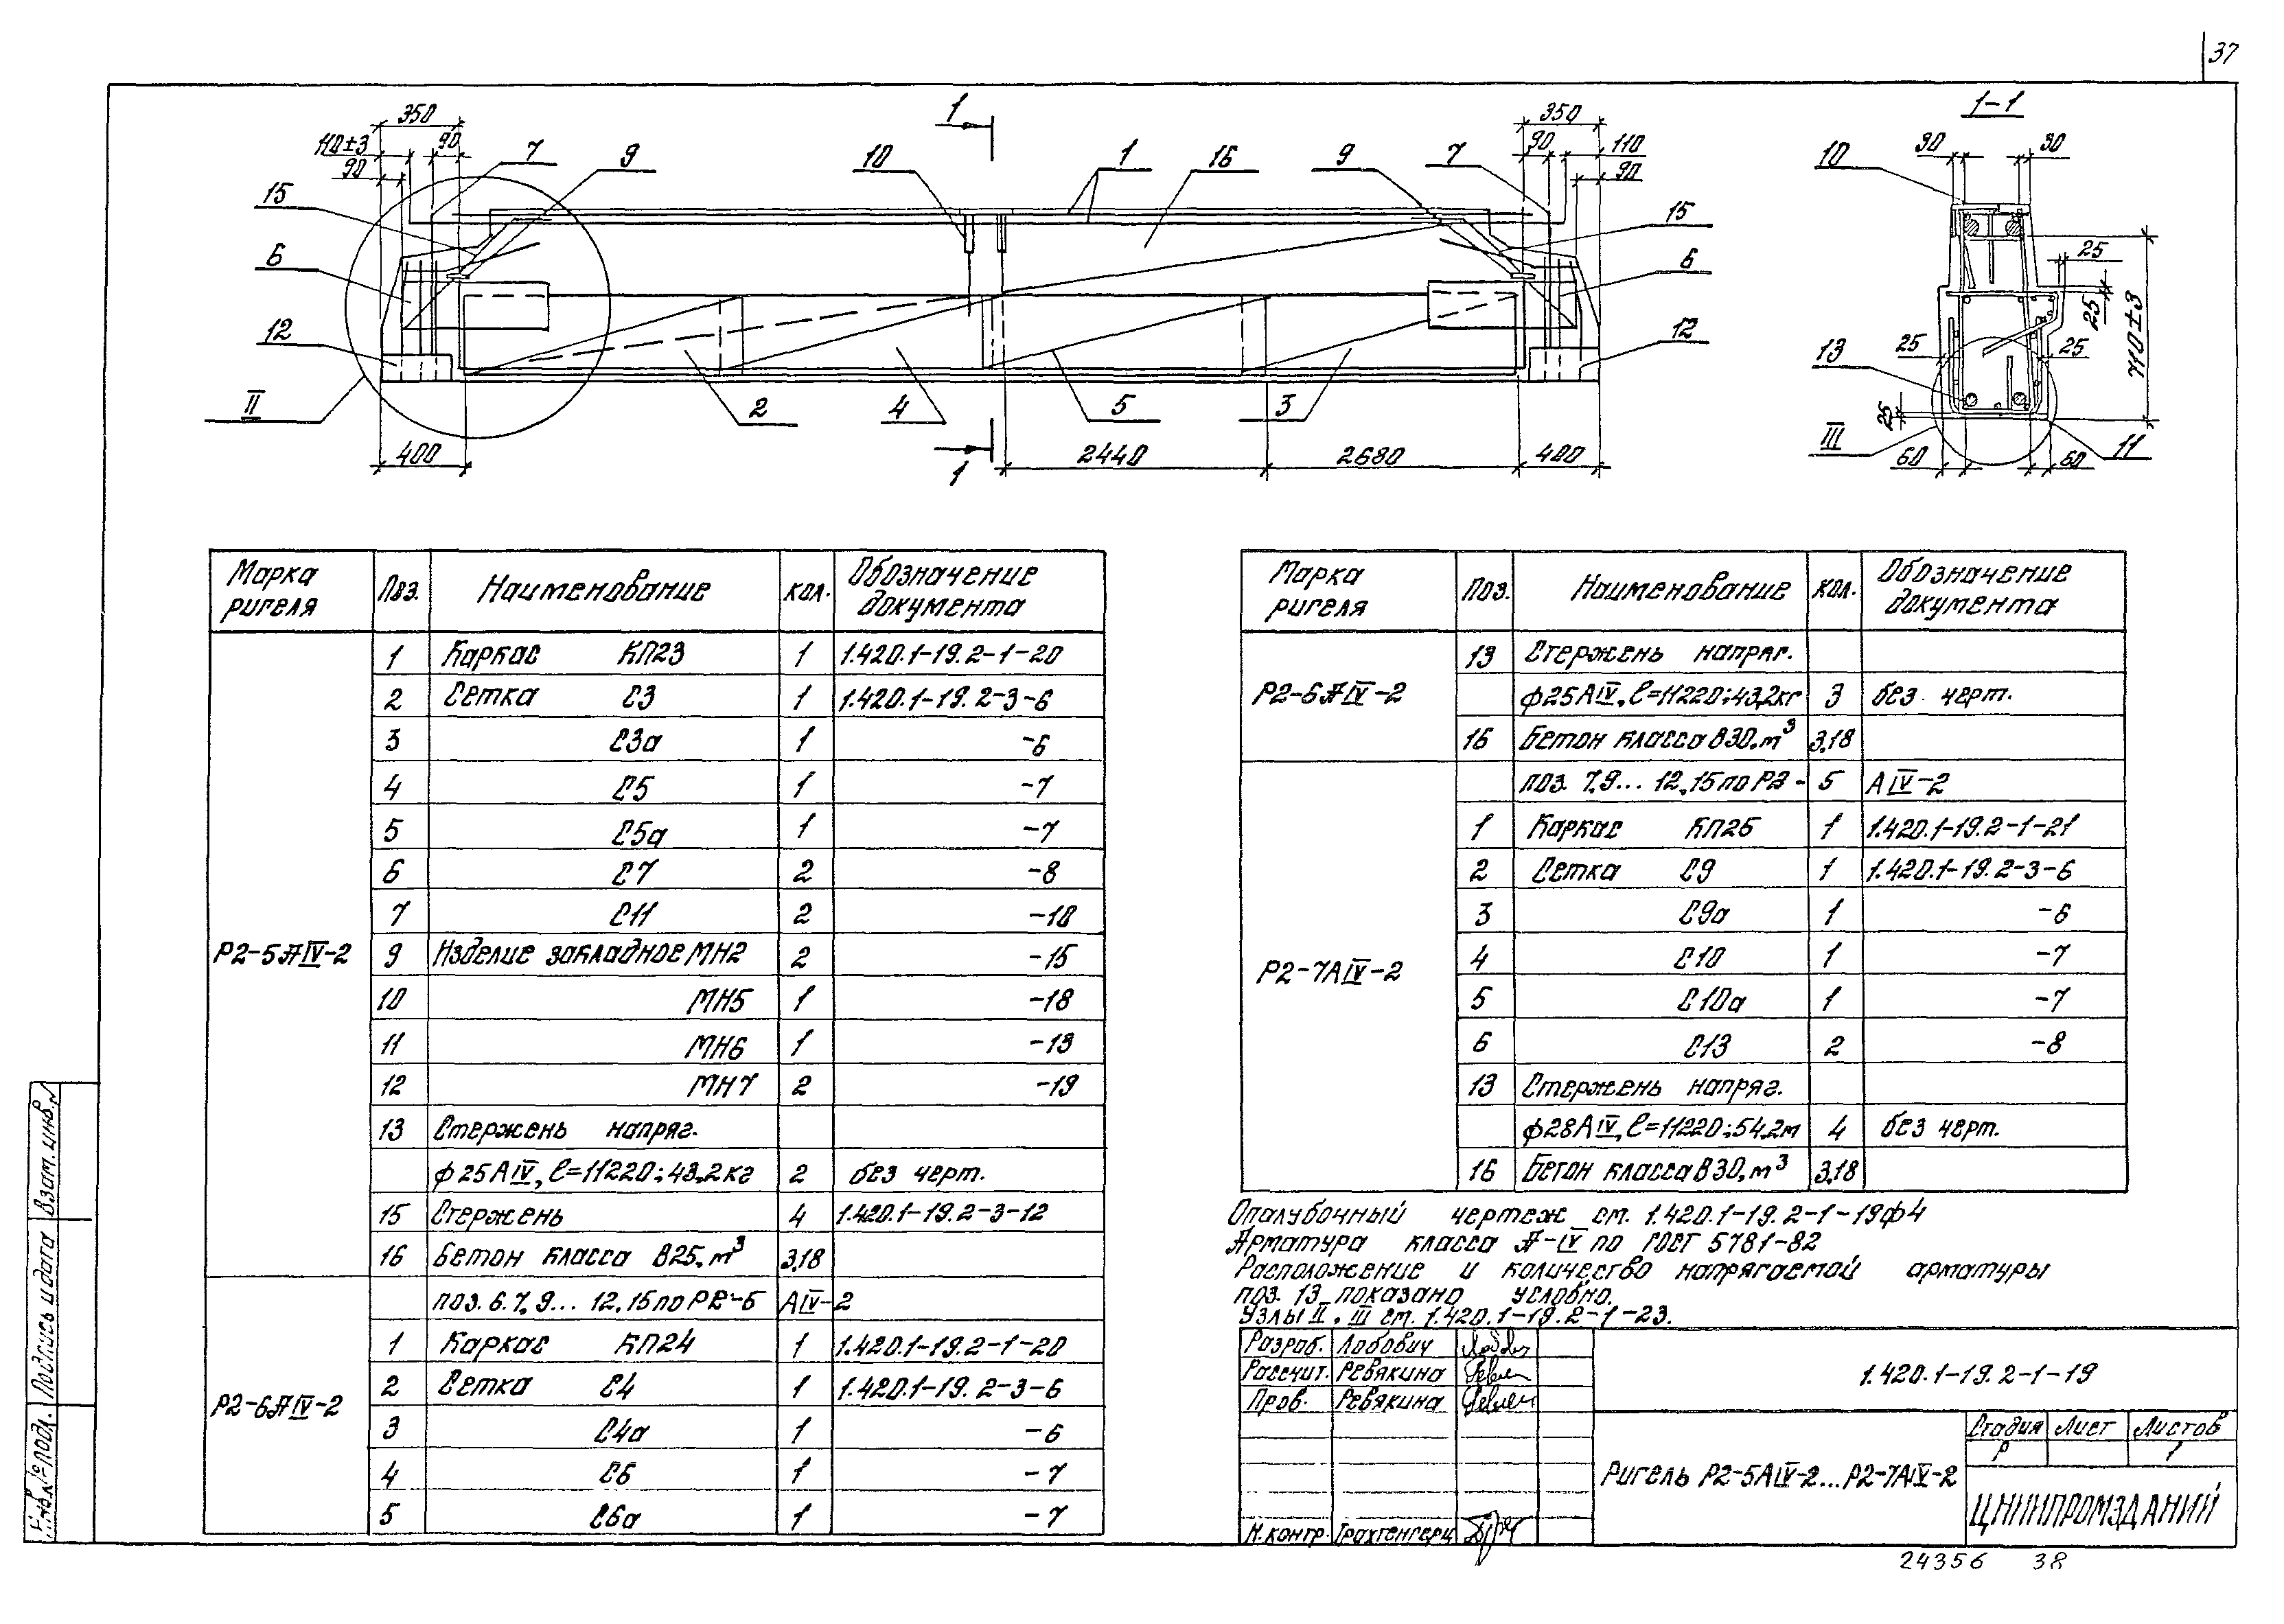 37
350
110±3
90
90
7
9
15
6
12
II
1
10
1
16
9
7
350
90
110
90
15
6
12
2
4
5
3
400
1
2440
2680
400
1-1
10
30
30
25
25
13
25
25
25
III
11
60
60
Марка ригеля | Поз. | Наименование | кол. | Обозначение документа
Р2-5АIV-2
1 | Каркас КП23 | 1 | 1.420.1-19.2-1-20
2 | Сетка С3 | 1 | 1.420.1-19.2-3-6
3 | С3а | 1 | -6
4 | С5 | 1 | -7
5 | С5а | 1 | -7
6 | С7 | 2 | -8
7 | С11 | 2 | -10
9 | Изделие закладное МН2 | 2 | -15
10 | МН5 | 1 | -18
11 | МН6 | 1 | -13
12 | МН7 | 2 | -19
13 | Стержень напряг.
ф25АIV, ℓ=11220; 43,2кг | 2 | без черт.
15 | Стержень | 4 | 1.420.1-19.2-3-12
16 | Бетон класса В25, м³ | 3,18
Р2-6АIV-2
поз. 6.7,9... 12,15 по Р2-5 АIV-2
1 | Каркас КП24 | 1 | 1.420.1-19.2-1-20
2 | Сетка С4 | 1 | 1.420.1-19.2-3-6
3 | С4а | 1 | -6
4 | С6 | 1 | -7
5 | С6а | 1 | -7
Марка ригеля | Поз. | Наименование | кол. | Обозначение документа
Р2-6АIV-2
13 | Стержень напряг.
ф25АIV, ℓ=11220; 43,2кг | 3 | без черт.
16 | Бетон класса В30, м³ | 3,18
Р2-7АIV-2
поз. 7,9... 12,15 по Р2- 5 АIV-2
1 | Каркас КП26 | 1 | 1.420.1-19.2-1-21
2 | Сетка С9 | 1 | 1.420.1-19.2-3-6
3 | С9а | 1 | -6
4 | С10 | 1 | -7
5 | С10а | 1 | -7
6 | С13 | 2 | -8
13 | Стержень напряг.
ф28АIV, ℓ=11220; 54,2м | 4 | без черт.
16 | Бетон класса В30, м³ | 3,18
Опалубочный чертеж см. 1.420.1-19.2-1-19ф4
Арматура класса А-IV по ГОСТ 5781-82
Расположение и количество напрягаемой арматуры
поз. 13 показано условно.
Узлы II, III см. 1.420.1-19.2-1-23.
Разраб. Лобович
Рассчит. Ревякина
Пров. Ревякина
Н.контр. Грахтенгерц
1.420.1-19.2-1-19
Ригель Р2-5АIV-2...Р2-7АIV-2
Стадия Лист Листов
Р 1
ЦНИИПРОМЗДАНИЙ
24356 38
Инв.№ подл. Подпись и дата Взам. инв.№